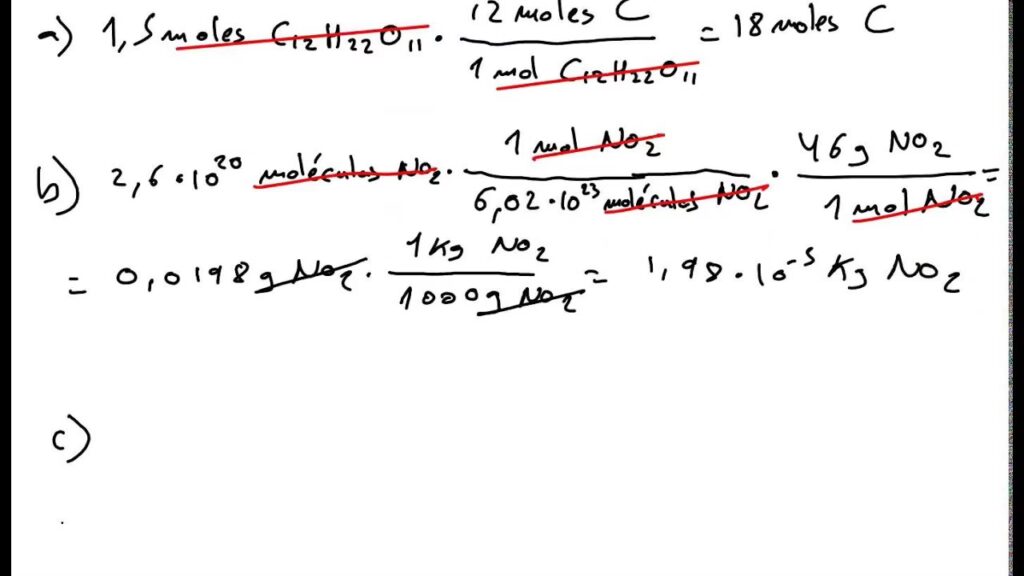 a) 1,5 moles C₁₂H₂₂O₁₁ · 12 moles C / 1 mol C₁₂H₂₂O₁₁ = 18 moles C
b) 2,6·10²⁰ moléculas NO₂ · 1 mol NO₂ / 6,02·10²³ moléculas NO₂ · 46g NO₂ / 1 mol NO₂ =
= 0,0198g NO₂ · 1Kg NO₂ / 1000g NO₂ = 1,98·10⁻⁵ Kg NO₂
c)